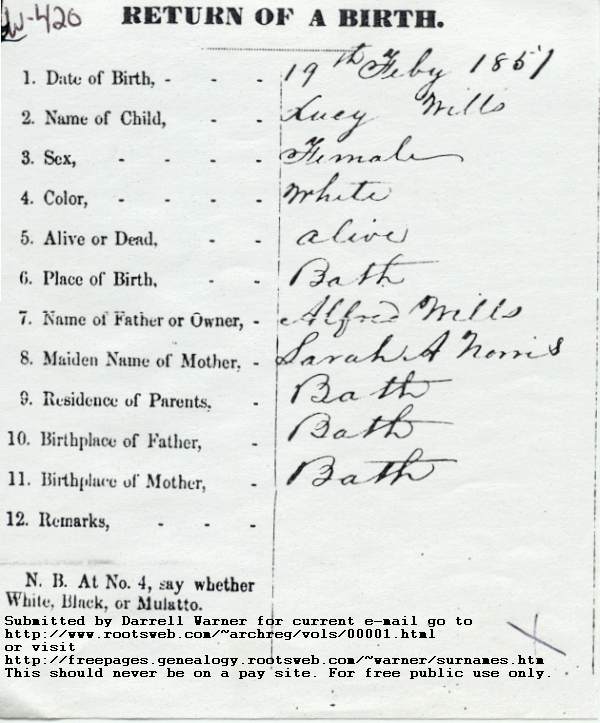 W-420
RETURN OF A BIRTH.
1. Date of Birth, - - - 19th Feby 1851
2. Name of Child, - - Lucy Wills
3. Sex, - - - - Female
4. Color, - - - - White
5. Alive or Dead, - - alive
6. Place of Birth, - - Bath
7. Name of Father or Owner, - Alfred Wills
8. Maiden Name of Mother, - Sarah A Norris
9. Residence of Parents, - Bath
10. Birthplace of Father, - Bath
11. Birthplace of Mother, - Bath
12. Remarks, - - -
N. B. At No. 4, say whether
White, Black, or Mulatto.
Submitted by Darrell Warner for current e-mail go to
http://www.rootsweb.com/~archreg/vols/00001.html
or visit
http://freepages.genealogy.rootsweb.com/~warner/surnames.htm
This should never be on a pay site. For free public use only.